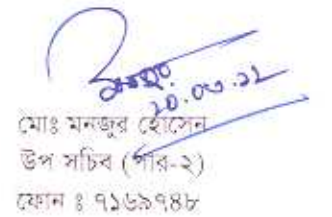 ২০.০৩.১২
মোঃ মনজুর হোসেন
উপ সচিব (পার-২)
ফোন ঃ ৭১৬৯৭৪৮